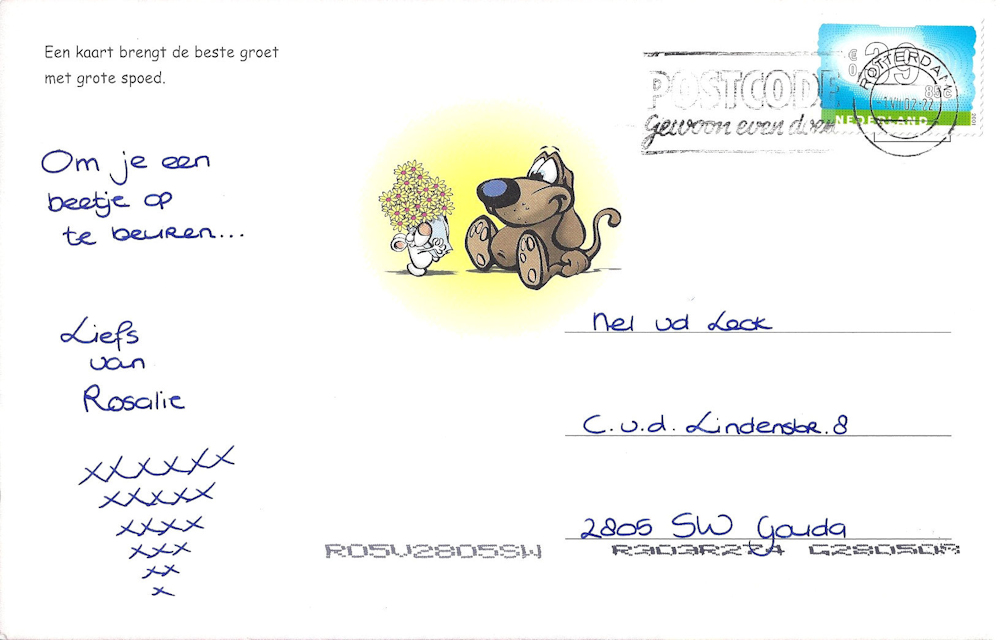 Een kaart brengt de beste groet
met grote spoed.
Om je een
beetje op
te beuren...
Liefs
van
Rosalie
xxxxxx
xxxxx
xxxx
xxx
xx
x
POSTCODE
Gewoon even doen
€
0,39
85c
NEDERLAND
ROTTERDAM
Nel vd Lock
C.v.d. Lindenstr. 8
2805 SW Gouda
R05V2805SW